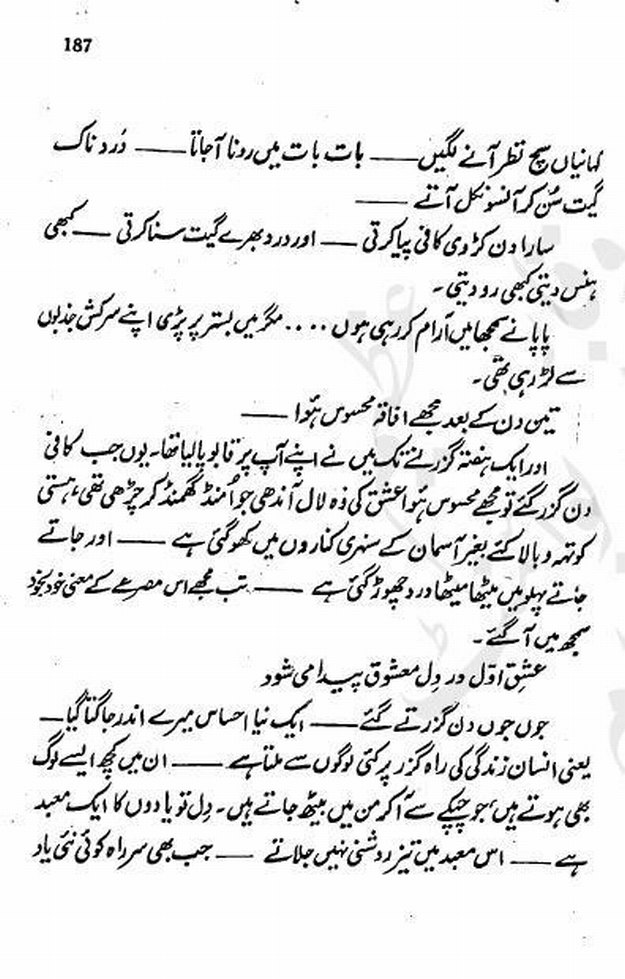 187
کہانیاں سچ نظر آنے لگیں —— بات بات میں رونا آجاتا —— دُرد ناک
گیت سُن کر آنسو نکل آتے ——
سارا دن کڑوی کافی پیا کرتی —— اور درد بھرے گیت سنا کرتی —— کبھی
ہنس دیتی کبھی رو دیتی۔
پاپا نے سمجھا میں آرام کر رہی ہوں .... مگر میں بستر پر پڑی اپنے سرکش جذبوں
سے لڑ رہی تھی۔
تین دن کے بعد مجھے افاقہ محسوس ہُوا ——
اور ایک ہفتہ گزرنے تک میں نے اپنے آپ پر قابو پا لیا تھا۔ یوں جب کافی
دن گزر گئے تو مجھے محسوس ہُوا عشق کی وہ لال آندھی جو اُمنڈ گھمنڈ کر چڑھی تھی، ہستی
کو تہہ و بالا کئے بغیر آسمان کے سنہری کناروں میں کھو گئی ہے —— اور جاتے
جاتے پہلو میں میٹھا میٹھا درد چھوڑ گئی ہے —— تب مجھے اس مصرعے کے معنی خود بخود
سمجھ میں آ گئے۔
عشقِ اوّل در دِل معشوق پیدا می شود
جوں جوں دن گزرتے گئے —— ایک نیا احساس میرے اندر جاگتا گیا —
یعنی انسان زندگی کی راہ گزر پر کئی لوگوں سے ملتا ہے —— ان میں کچھ ایسے لوگ
بھی ہوتے ہیں، جو چپکے سے آ کر من میں بیٹھ جاتے ہیں۔ دِل تو یادوں کا ایک معبد
ہے —— اس معبد میں تیز روشنی نہیں جلاتے —— جب بھی سرِ راہ کوئی نئی یاد